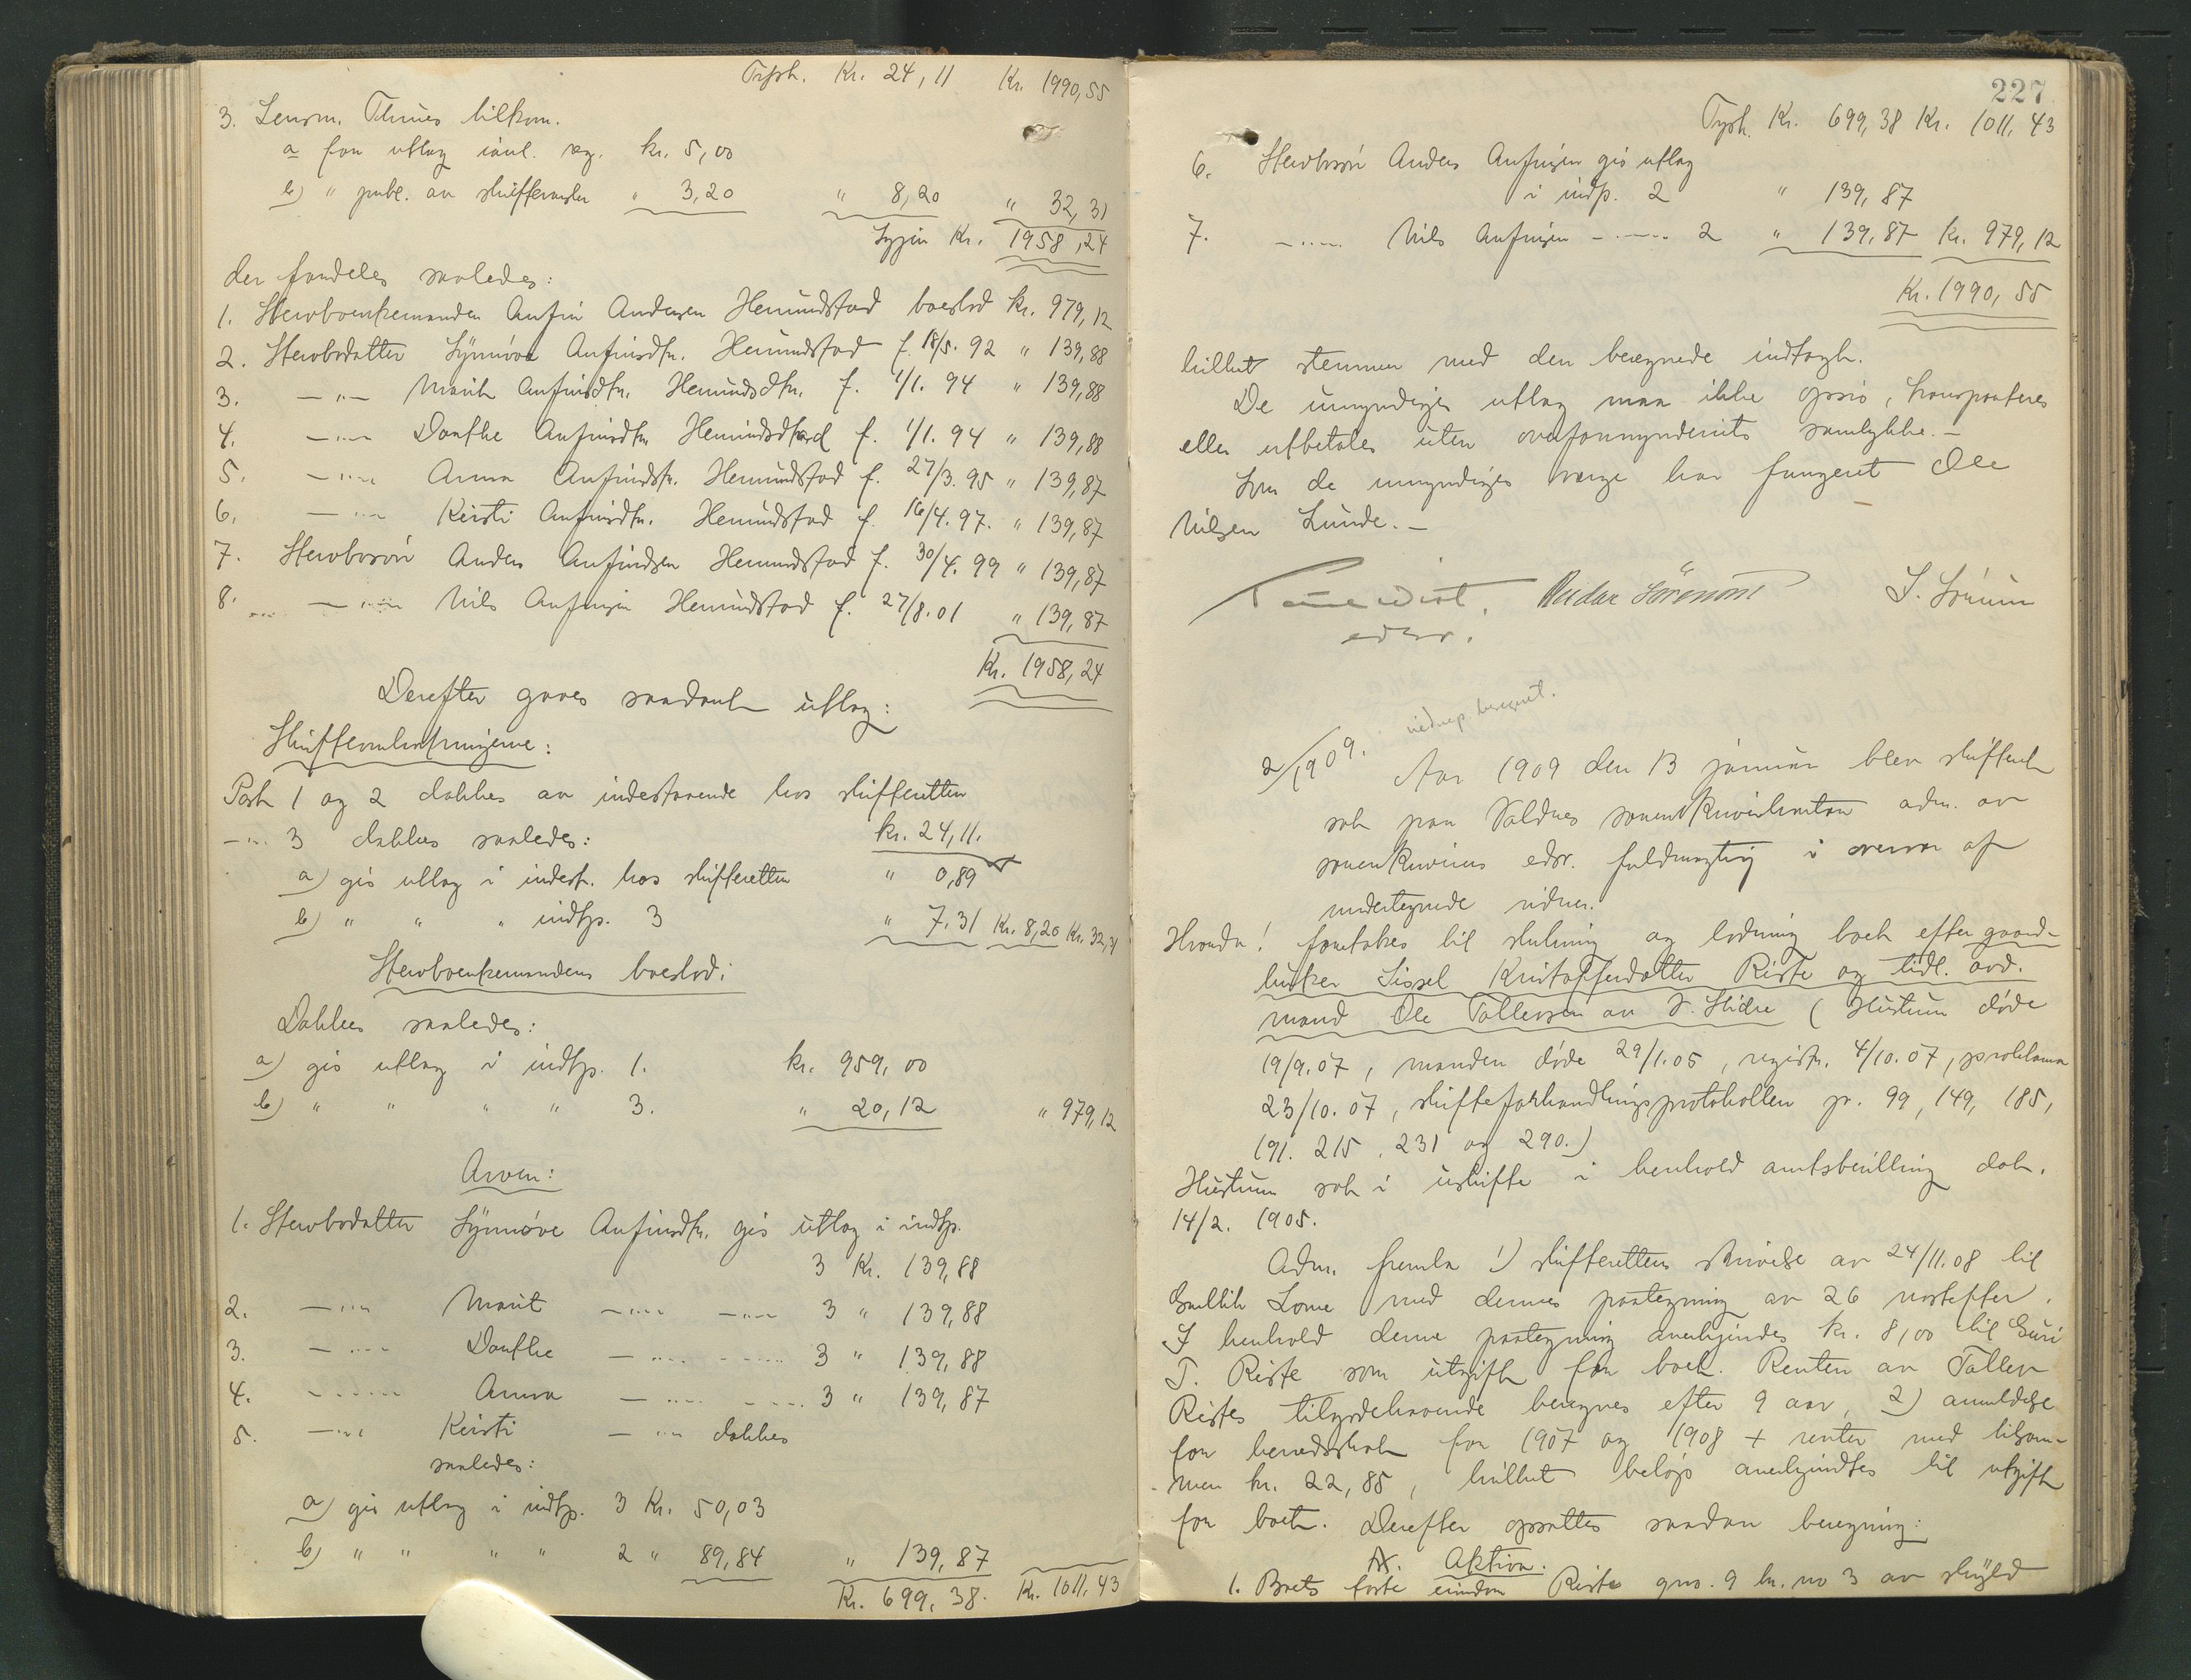 Trsp. Kr. 24,11 Kr. 1990,55
3. Lensm. Thunes tilkom.
a for utlæg inul. reg. kr. 5,00
b) " publ. av skiftesamler " 3,20 " 8,20 " 32,31
Igjen Kr. 1958,24
der fordeles saaledes:
1. Stervboenkemanden Anfin Andersen Hemundstad boeslod kr. 979,12
2. Stervbodatter Synnøve Anfinsdtr. Hemundstad f. 18/5. 92 " 139,88
3. —"— Marit Anfinsdtr. Hemundsdtr. f. 1/1. 94 " 139,88
4. —"— Dorthe Anfinsdtr. Hemundstad f. 1/1. 94 " 139,88
5. —"— Anna Anfindstr. Hemundstad f. 27/3. 95 " 139,87
6. —"— Kersti Anfinsdtr. Hemundstad f. 16/4. 97. " 139,87
7. Stervbosøn Anders Anfindsen Hemundstad f. 30/4. 99 " 139,87
8. —"— Nils Anfinsen Hemundstad f. 27/8. 01 " 139,87
Kr. 1958,24
Derefter gaves saadant utlæg:
Skifteomkostningerne:
Post 1 og 2 dækkes av indestaaende hos skifteretten
kr. 24,11.
—"— 3 dækkes saaledes:
a) gis utlæg i indest. hos skifteretten " 0,89
b) " " " indtp. 3 " 7,31 Kr. 8,20 Kr. 32,31
Stervboenkemandens boeslod:
Dækkes saaledes:
a) gis utlæg i indtp. 1. kr. 959,00
b) " " " " 3. " 20,12 " 979,12
Arven:
1. Stervbodatter Synnøve Anfinsdtr. gis utlæg i indtp.
3 Kr. 139,88
2. —"— Marit —"— —"— 3 " 139,88
3. —"— Dorthe —"— —"— 3 " 139,88
4. —"— Anna —"— —"— 3 " 139,87
5. —"— Kersti —"— dækkes
saaledes:
a) gis utlæg i indtp. 3 Kr. 50,03
b) " " " " 2 " 89,84 " 139,87
Kr. 699,38. Kr. 1011,43
227
Trsp. Kr. 699,38 Kr. 1011,43
6. Stervbosøn Anders Anfinsen gis utlæg
i indtp. 2 " 139,87
7. —"— Nils Anfinsen —"— 2 " 139,87 kr. 979,12
Kr. 1990,55
hvilket stemmer med den beregnede indtægt.
De umyndiges utlæg maa ikke opsies, transporteres
eller utbetales uten overformynderiets samtykke.—
Som de umyndiges verge har fungeret Ole
Nilsen Lunde.—
edsv.
2/1909.
Aar 1909 den 13 januar blev skifteret
sat paa Valdres sorenskriverkontor adm. av
sorenskriverens edsv. fuldmægtig i overvær af
undertegnede vidner.
Hvorda! foretokes til slutning og lodning boet efter gaard-
bruker Sissel Kristoffersdatter Riste og tidl. avd.
mand Ole Tollevsen av V. Slidre (Hustruen døde
19/9. 07, manden døde 29/1. 05, registr. 4/10. 07, proklama
23/10. 07, skifteforhandlingsprotokollen p. 99, 149, 185,
191. 215, 231 og 290.)
Hustruen sat i uskifte i henhold amtsbevilling dat.
14/2. 1905.
Adm. fremla 1) skifterettens skrivelse av 24/11. 08 til
Lome med dennes paategning av 26 næstefter.
I henhold denne paategning anerkjendes kr. 8,00 til Guri
T. Riste som utgift for boet. Renten av Tollev
Ristes tilgodehavende beregnes efter 9 aar, 2) anmeldelse
for herredsskat for 1907 og 1908 + renter med tilsam-
men kr. 22,85, hvilket beløp anerkjendtes til utgift
for boet. Derefter opsattes saadan beregning:
A. Aktiva.
1. Boets faste eiendom Riste gno. 9 br. no 3 av skyld